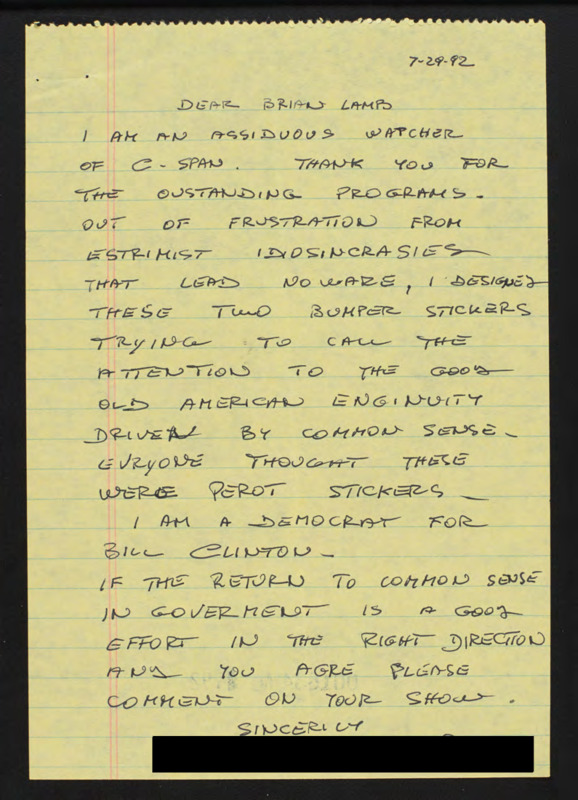 7-29-92
DEAR BRIAN LAMB
I AM AN ASSIDUOUS WATCHER
OF C-SPAN. THANK YOU FOR
THE OUSTANDING PROGRAMS.
OUT OF FRUSTRATION FROM
ESTRIMIST IDIOSINCRASIES
THAT LEAD NOWARE, I DESIGNED
THESE TWO BUMPER STICKERS
TRYING TO CALL THE
ATTENTION TO THE GOOD
OLD AMERICAN ENGINUITY
DRIVEN BY COMMON SENSE-
EVRYONE THOUGHT THESE
WERE PEROT STICKERS -
I AM A DEMOCRAT FOR
BILL CLINTON-
IF THE RETURN TO COMMON SENSE
IN GOVERMENT IS A GOOD
EFFORT IN THE RIGHT DIRECTION
AND YOU AGRE PLEASE
COMMENT ON YOUR SHOW.
SINCERILY